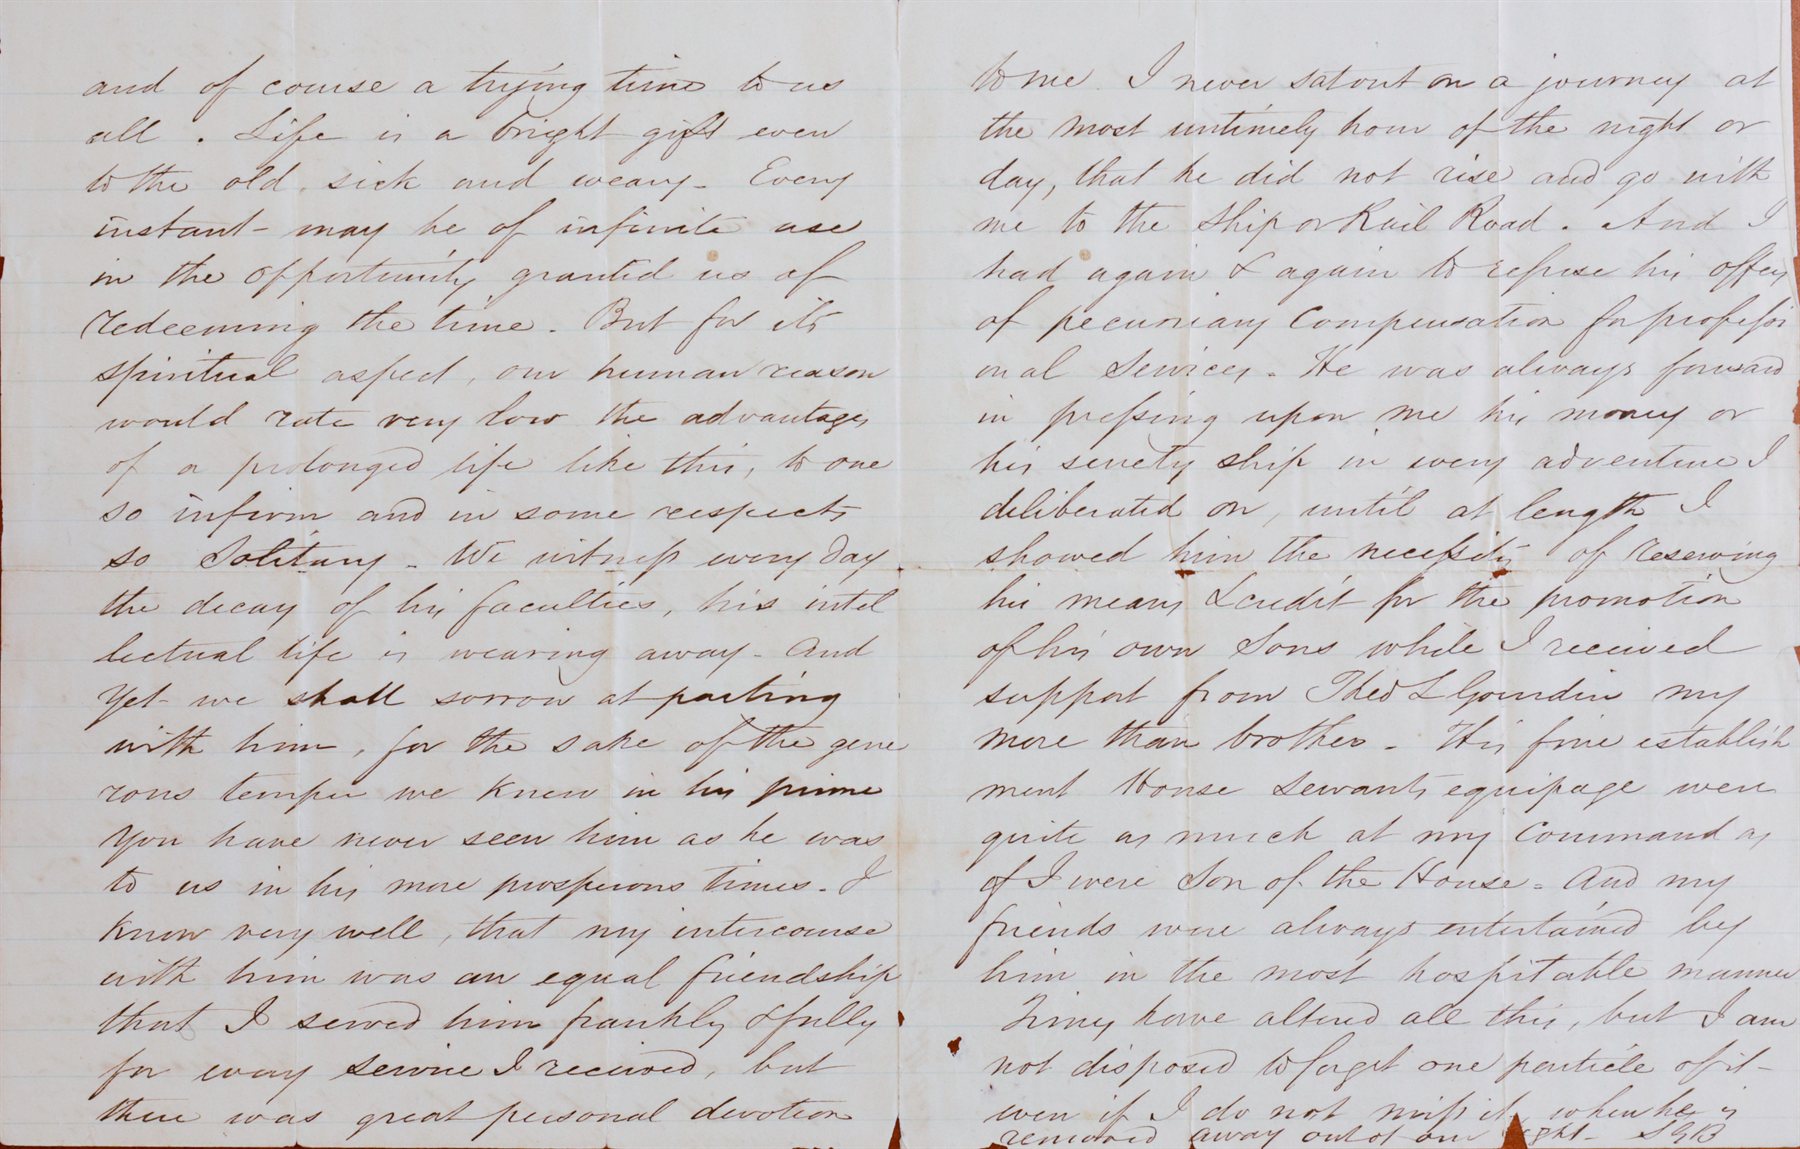 and of course a trying time to us
all. Life is a bright gift even
to the old, sick and weary. Every
instant may be of infinite use
in the opportunity granted us of
redeeming the time. But for its
spiritual aspect, our human reason
would rate very low the advantages
of a prolonged life like this, to one
so infirm and in some respects
so Solitary. We witness every day
the decay of his faculties, his intel
lectual life is wearing away. And
yet we shall sorrow at parting
with him, for the sake of the gene
rous temper we knew in his prime
You have never seen him as he was
to us in his more prosperous times. I
know very well, that my intercourse
with him was an equal friendship
that I served him frankly & fully
for every service I received, but
there was great personal devotion
to me. I never sat out on a journey at
the most untimely hour of the night or
day, that he did not rise and go with
me to the Ship or Rail Road. And I
had again & again to refuse his offers
of pecuniary Compensation for professi
onal Services. He was always forward
in pressing upon me his money or
his surety ship in every adventure I
deliberated on, until at length I
showed him the necessity of reserving
his means & credit for the promotion
of his own Sons while I received
support from Theo L Gourdin my
more than brother. His fine establish
ment House Servants equipage were
quite as much at my Command as
if I were Son of the House. And my
friends were always entertained by
him in the most hospitable manner
Times have altered all this, but I am
not disposed to forget one particle of it
even if I do not miss it when he is
removed away out of our sight. SGB